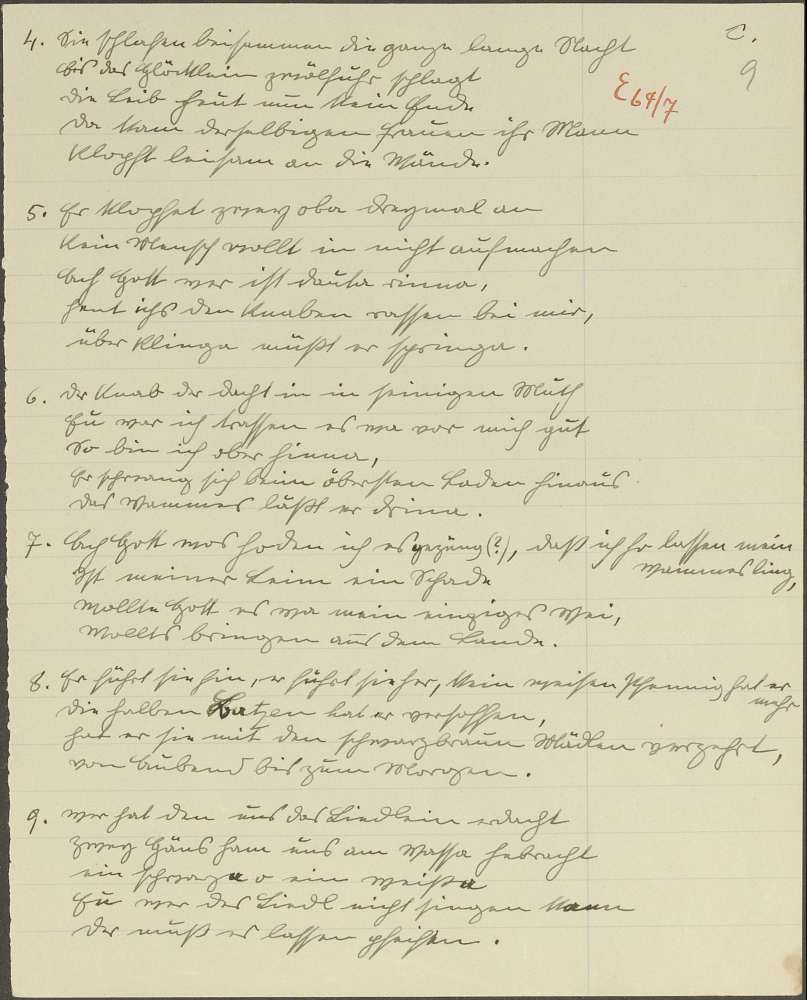 C.
9
E 64/7
4. Sie schlafen beisammen die ganze lange Nacht
bis das Glöcklein zwölfuhr schlagt
die Leib heut nun kein Ende
da kam derselbigen Frauen ihr Mann
klopft leisam an die Wände.
5. Er klopfet zwey oba dreymal an
kein Mensch wollt in nicht aufmachen
Ach Gott wer ist dauta rinna,
hent ichs den Knaben rassen bei mir,
über Klinga müßt er springa.
6. Der Knab der dacht in in seinigen Muth
Eu war ich trassen es wa vor mich gut
So bin ich ober hinna,
Er schwang sich beim öbersten Laden hinaus
das Wammes läßt er drina.
7. Ach Gott was hoden ich es gezüng (?), daß ich ho lassen mein
Wammesling,
Ist meiner Leim ein Schade
Wollte Gott es wa mein einziges Wei,
Wollts bringen aus dem Lande.
8. Er führt sie hin, er führt sie her, kein weisen Pfennig hat er
mehr
die halben Batzen hat er versoffen,
hat er sie mit den schwarzbraun Mädlen verzehrt,
von Aubend bis zum Morgen.
9. wer hat den uns das Liedlein erdacht
zwey Gäns ham uns am Wassa hebracht
ein schwarza o ein weißa
Eu wer des Liedl nicht singen kann
der muß es lassen pfeifen.